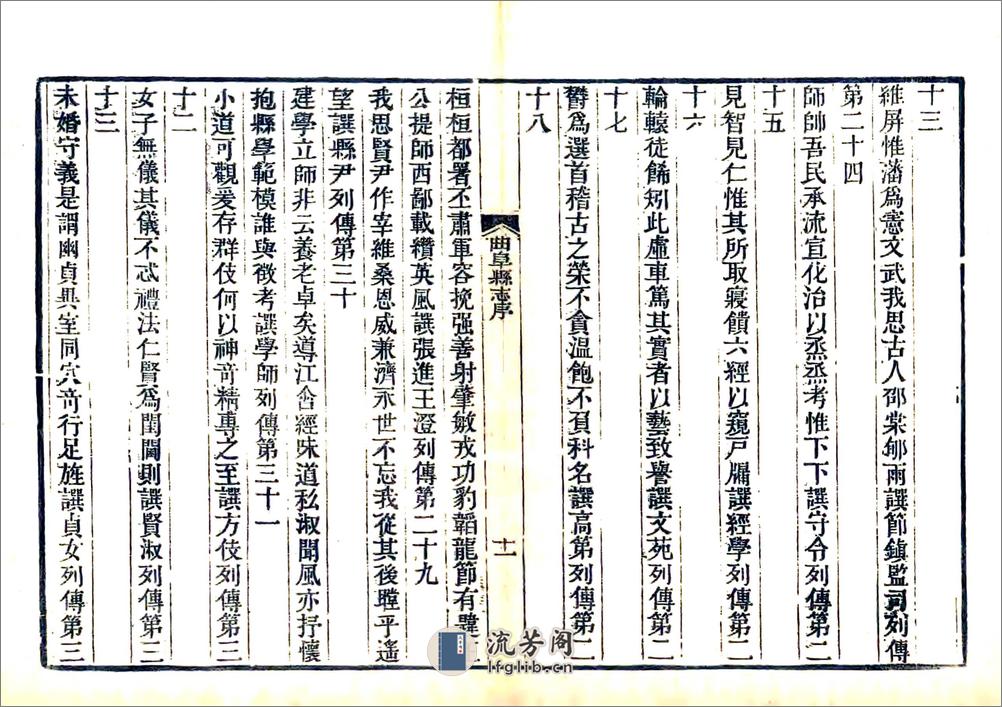 十三
維屏惟藩爲憲文武我思古人邵棠郇雨譔節鎮監司列傳
第二十四
師師吾民承流宣化治以烝烝考惟下下譔守令列傳第二
十五
見智見仁惟其所取寢饋六經以窺戸牖譔經學列傳第二
十六
輪轅徒餙矧此虛車篤其實者以藝致譽譔文苑列傳第二
十七
欝爲選首稽古之榮不貪溫飽不負科名譔高第列傳第二
十八
曲阜縣志序
十一
桓桓都署丕肅軍容挽强善射肇敏戎功豹韜龍節有韙
公提師西鄙載纘英風譔張進王澄列傳第二十九
我思賢尹作宰維桑恩威兼濟永世不忘我從其後瞠乎遙
望譔縣尹列傳第三十
建學立師非云養老卓矣導江含經味道私淑聞風亦抒懷
抱縣學範模誰與徵考譔學師列傳第三十一
小道可觀爰存群伎何以神竒精專之至譔方伎列傳第三
十二
女子無儀其儀不忒禮法仁賢爲閨閫則譔賢淑列傳第三
十三
未婚守義是謂幽貞異室同穴竒行足旌譔貞女列傳第三
流芳阁
lfglib.cn